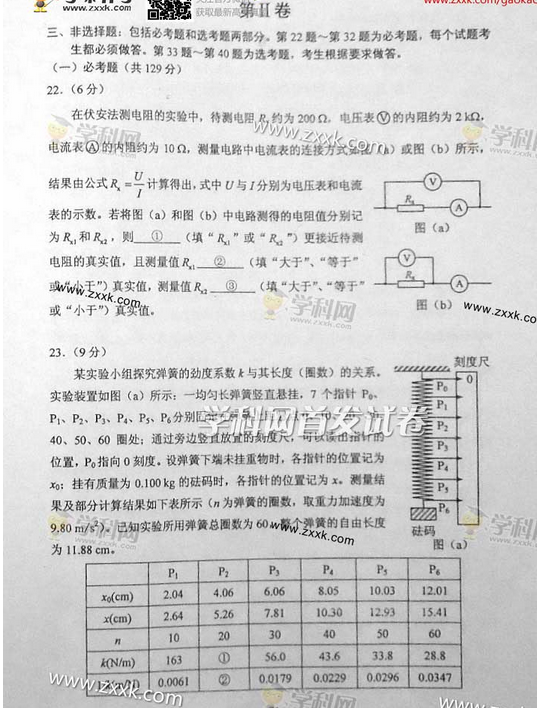 第Ⅱ卷
www.zxxk.com/gaokao
三、非选择题：包括必考题和选考题两部分。第 22 题～第 32 题为必考题，每个试题考
生都必须做答。第 33 题～第 40 题为选考题，考生根据要求做答。
（一）必考题（共 129 分）
22.（6 分）
在伏安法测电阻的实验中，待测电阻 Rx 约为 200 Ω，电压表Ⓥ的内阻约为 2 kΩ，
电流表Ⓐ的内阻约为 10 Ω，测量电路中电流表的连接方式如图（a）或图（b）所示，
结果由公式 Rx = U/I 计算得出，式中 U 与 I 分别为电压表和电流
表的示数。若将图（a）和图（b）中电路测得的电阻值分别记
为 Rx1 和 Rx2，则 ① （填“Rx1”或“Rx2”）更接近待测
电阻的真实值，且测量值 Rx1 ② （填“大于”、“等于”
或“小于”）真实值，测量值 Rx2 ③ （填“大于”、“等于”
或“小于”）真实值。
V
Rx
A
图（a）
V
Rx
A
图（b）
学科网
www.zxxk.com
23.（9 分）
某实验小组探究弹簧的劲度系数 k 与其长度（圈数）的关系。
实验装置如图（a）所示：一均匀长弹簧竖直悬挂，7 个指针 P0、
P1、P2、P3、P4、P5、P6 分别
40、50、60 圈处；通过旁边竖直放置的刻度尺，可以读出指针的
位置，P0 指向 0 刻度。设弹簧下端未挂重物时，各指针的位置记为
x0；挂有质量为 0.100 kg 的砝码时，各指针的位置记为 x。测量结
果及部分计算结果如下表所示（n 为弹簧的圈数，取重力加速度为
9.80 m/s²）。已知实验所用弹簧总圈数为 60，整个弹簧的自由长度
为 11.88 cm。
学科网首发试卷
刻度尺
0
P0
P1
P2
P3
P4
P5
P6
砝码
图（a）
P1 P2 P3 P4 P5 P6
x0(cm) 2.04 4.06 6.06 8.05 10.03 12.01
x(cm) 2.64 5.26 7.81 10.30 12.93 15.41
n 10 20 30 40 50 60
k(N/m) 163 ① 56.0 43.6 33.8 28.8
0.0061 ② 0.0179 0.0229 0.0296 0.0347
www.zxxk.com